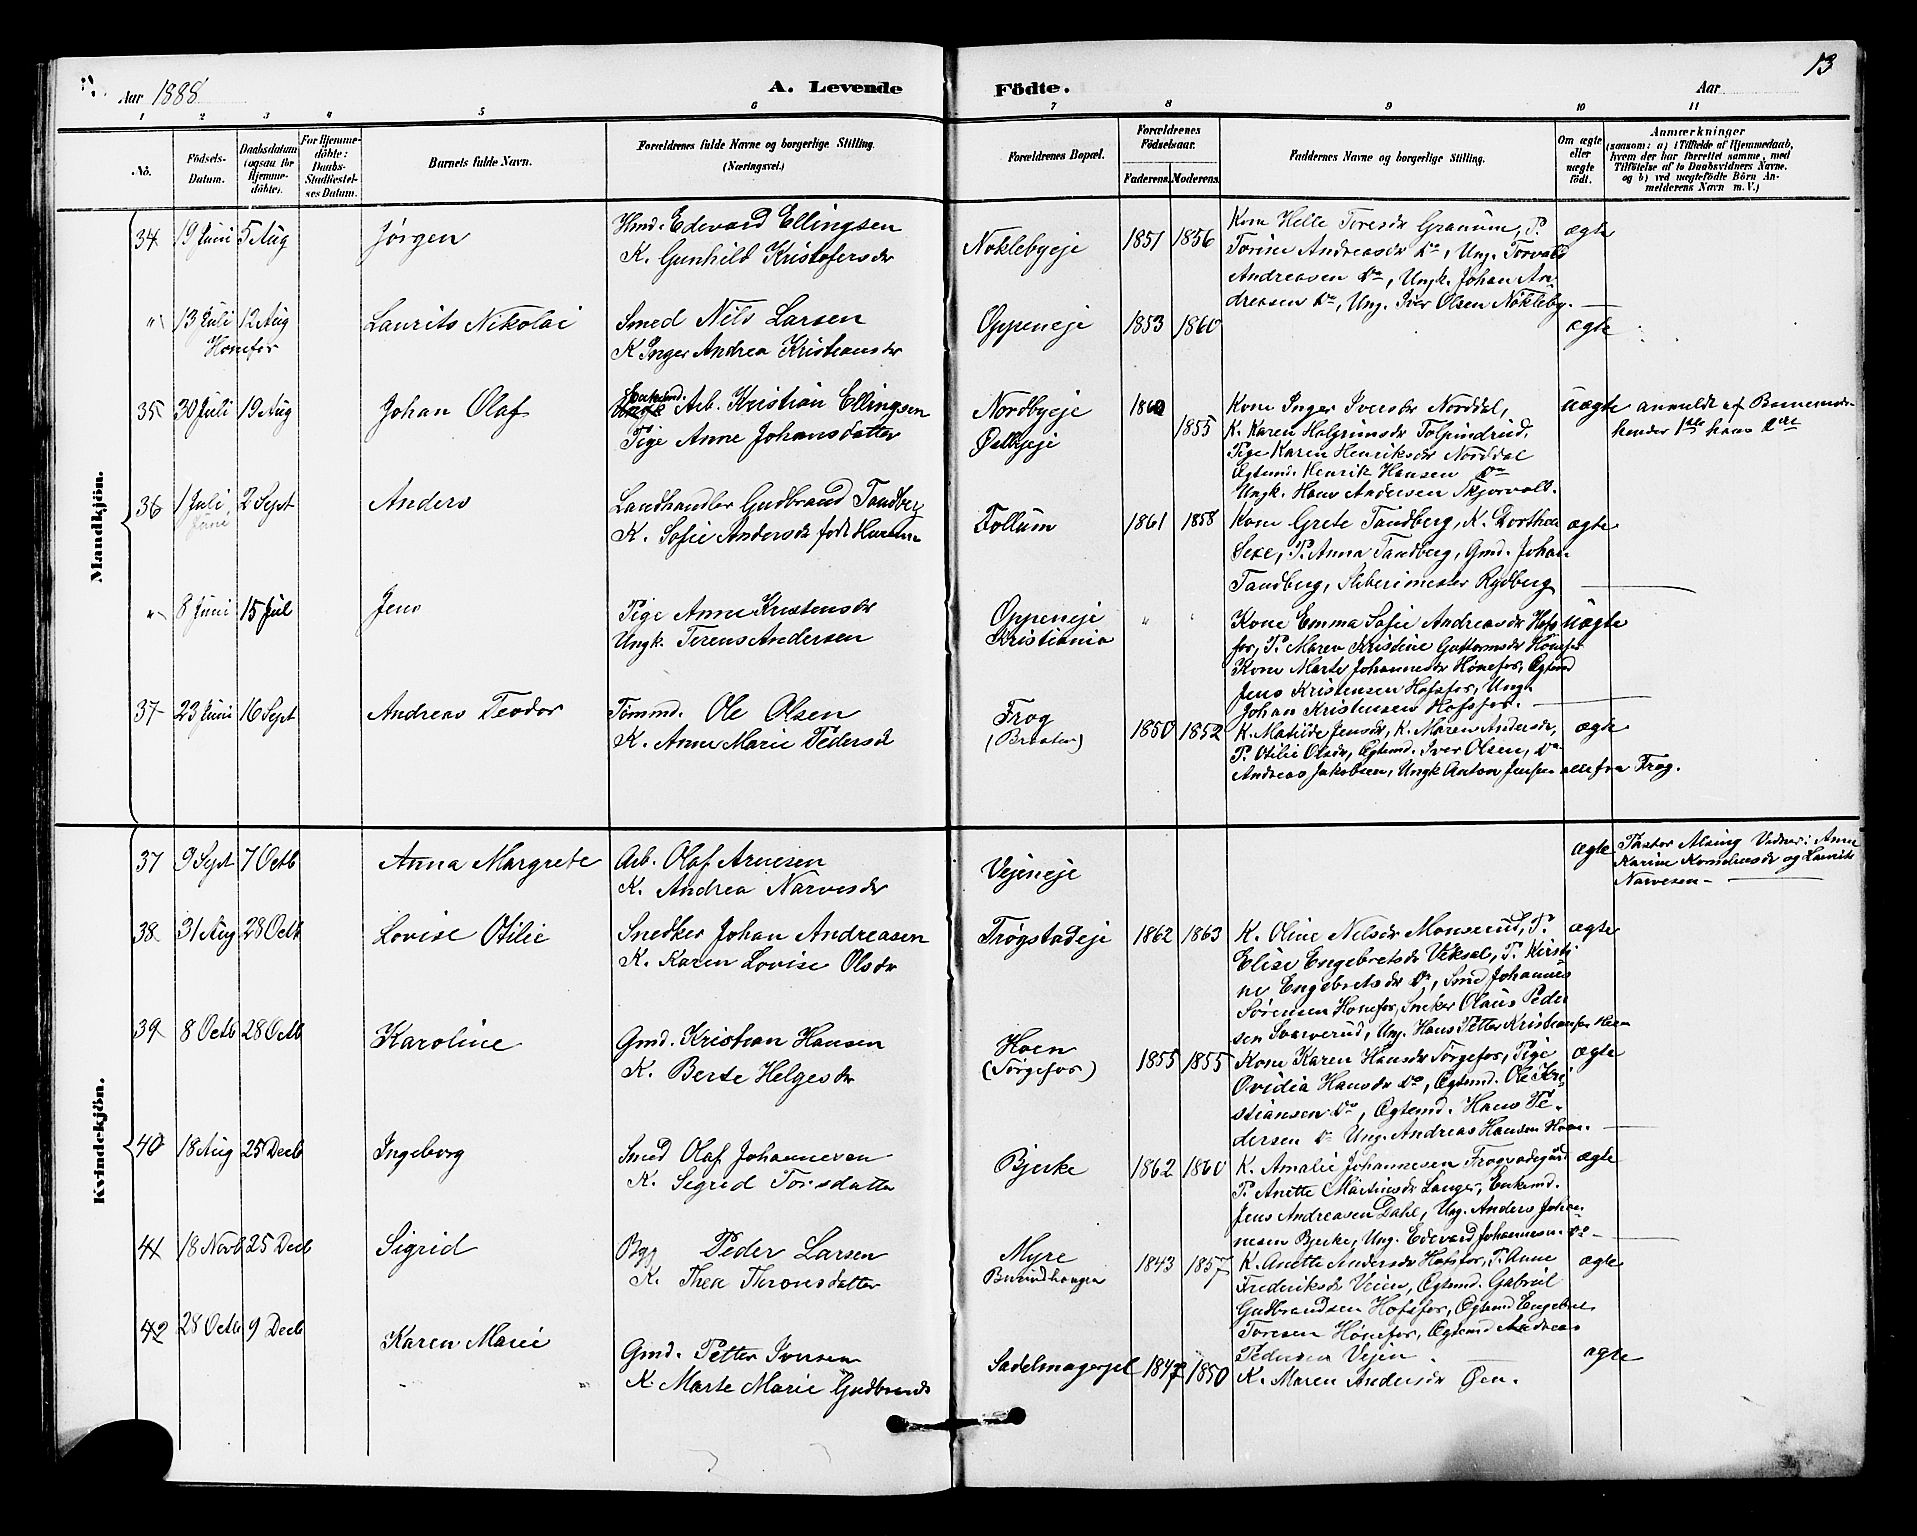 Aar 1888
A. Levende
Födte.
Aar
13
1 2 3 4 5 6 7 8 9 10 11
No.
Födsels-
Datum.
Daabsdatum
(ogsaa for
Hjemme-
döbte).
For Hjemme-
döbte:
Daabs-
Stadfæstel-
ses Datum.
Barnets fulde Navn.
Forældrenes fulde Navne og borgerlige Stilling.
(Næringsvei.)
Forældrenes Bopæl.
Forældrenes
Födselsaar.
Faderens. Moderens.
Faddernes Navne og borgerlige Stilling.
Om ægte
eller
uægte
födt.
Anmærkninger
(saasom: a) i Tilfælde af Hjemmedaab,
hvem der har forrettet samme, med
Tilföielse af to Daabsvidners Navne,
og b) ved uægtefödte Börn An-
melderens Navn m. V.)
Mandkjön.
34 19 Juni 5 Aug Jörgen Hmd. Edevard Ellingsen
K. Gunhild Kristofersdr
Noklebyeje 1851 1856
Kone Helle Toresdr Granum, P.
Torine Andreasdr Do, Ung. Torvald
Andreasen Do, Ungk. Johan An-
dreasen Do, Ung. Iver Olsen Nökleby.
ægte
" 13 Juli 12 Aug Laurits Nikolai Smed Nils Larsen
Honefos K Inger Andrea Kristiansdr
Oppeneje 1853 1860 ægte
35 30 Juli 19 Aug Johan Olaf Arb. Kristian Ellingsen
Pige Anne Johansdatter
Nordbyeje
1855
Kone Inger Iversdr Norddal,
K. Karen Halgrimsdr Tolpindrud,
Pige Karen Henriksdr Norddal
Egtemd. Henrik Hansen Do
Ungk. Hans Andersen Skjorvold.
uægte anmeldt af Barnemo-
36 1 Juli 2 Sept Anders Landhandler Gudbrand Tandberg
Juni K. Sofie Andersdr födt
Follum 1861 1858
Kone Grete Tandberg, K. Dorthea
Sexe, P. Anna Tandberg, Gmd. Johan
Tandberg, Sliberimester Rydberg
ægte
" 8 Juni 15 Jul Jens Pige Anne Kristensdr
Ungk. Terens Andersen
Oppeneje
Kristiania
" "
Kone Emma Sofie Andreasdr Hofs
fos, P. Maren Kristine Guttormsdr Hönefos
Kone Marte Johannesdr Hönefos, Egtemd
Jens Kristensen Hofsfos, Ungk.
Johan Kristensen Hofsfos.
uægte
37 23 Juni 16 Sept Andreas Teodor Tömmd. Ole Olsen
K. Anne Marie Pedersdr
Frog
(Braaten)
1850 1852
K. Matilde Jensdr, K. Maren Andersdr,
P. Otilie Olsdr, Egtemd. Iver Olsen, Do
Andreas Jakobsen, Ungk Anton Jensen alle fra Frog.
ægte
Kvindekjön.
37 9 Sept 7 Octb Anna Margrete Arb. Olaf Arnesen
K. Andrea Narvesdr
Vejeneje
ægte Pastor Alsing Vidner: Anne
Karine og Laurits
Narvesen
38 31 Aug 28 Octb Lovise Otilie Snedker Johan Andreasen
K. Karen Lovise Olsdr
Trögstadeje 1862 1863
K. Oline Nelsdr Monserud, P.
Elise Engebretsdr Veksal, P. Kirsti
ne Engebretsdr Do, Smd Johannes
Sörensen Hönefos, Sneker Olaus Peder
sen Svarverud, Ung. Hans Petter Kristiansen
ægte
39 8 Octb 28 Octb Karoline Gmd. Kristian Hansen
K. Berte Helgesdr
Hoen
(Törgefos)
1855 1855
Kone Karen Hansdr Törgefos, Pige
Ovidia Hansdr Do, Egtemd. Ole Kri
stiansen Do, Egtemd. Hans Pe-
dersen Do Ung. Andreas Hansen Hoen.
ægte
40 18 Aug 25 Decb Ingeborg Smed Olaf Johannesen
K. Sigrid Torsdatter
Bjerke 1862 1860
K. Amalie Johannesen
P. Anette Martinsdr Langes, Enkemd.
Jens Andreasen Dahl, Ung. Anders Johan-
nesen Bjerke, Ung. Edevard Johannesen Do
ægte
41 18 Novb 25 Decb Sigrid Peder Larsen
K. Thea Thronsdatter
Myre
1843 1857
K. Anette Andersdr Hofsfos, P. Anne
Frederiksdr Veien, Egtemd. Gabriel
Gudbrandsen Hofsfos, Egtemd Engebret
Toresen Hönefos, Egtemd Andreas
Pedersen Vejen.
ægte
42 28 Octb 9 Decb Karen Marie Gmd. Petter Iversen
K. Marte Marie Gudbrandsdr
Sadelmagerpl 1847 1850
K. Maren Andersdr Öen.
ægte